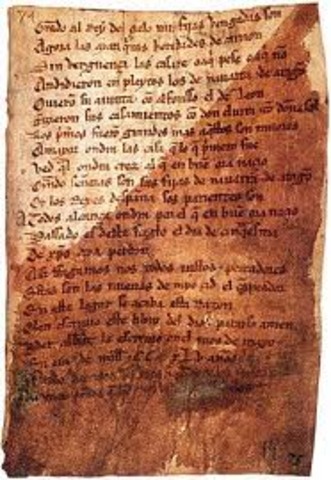 Grado al Rey del çielo mis fijas vengadas son
Agora las ayan quitas heredades de carrion
Sin verguença las casare o aqi pese o aqi nõ
Andidieron en pleytos los de nauarra & de aragõ
Ouieron su aiunta cõ alfonsso el de leon
Fizieron sus casamientos cõ don eluira & cõ doña sol
Los pͥmos fuerõ grandes mas aqstos son mijores
A mayor ondra las casa q lo q pͥmero fue
Ved ql ondra creçe al q en buẽ ora naçio
Quãdo señoras son sus fijas de nauarra & de aragõ
Oy los Reyes despaña sos parientes son
A todos alcança ondra por el q en buẽ ora naçio
Passado es deste sieglo el dia de cinqsma
De xpo aya perdon
Assi ffagamos nos todos iustos & peccadores
Estas son las nueuas de myo çid el canpeador
En este logar se acaba esta Razon
Quien escriuio este libro del dios parayso amen
Per abbat le escriuio en el mes de mayo
En era de mill & C.C. xL.v. años